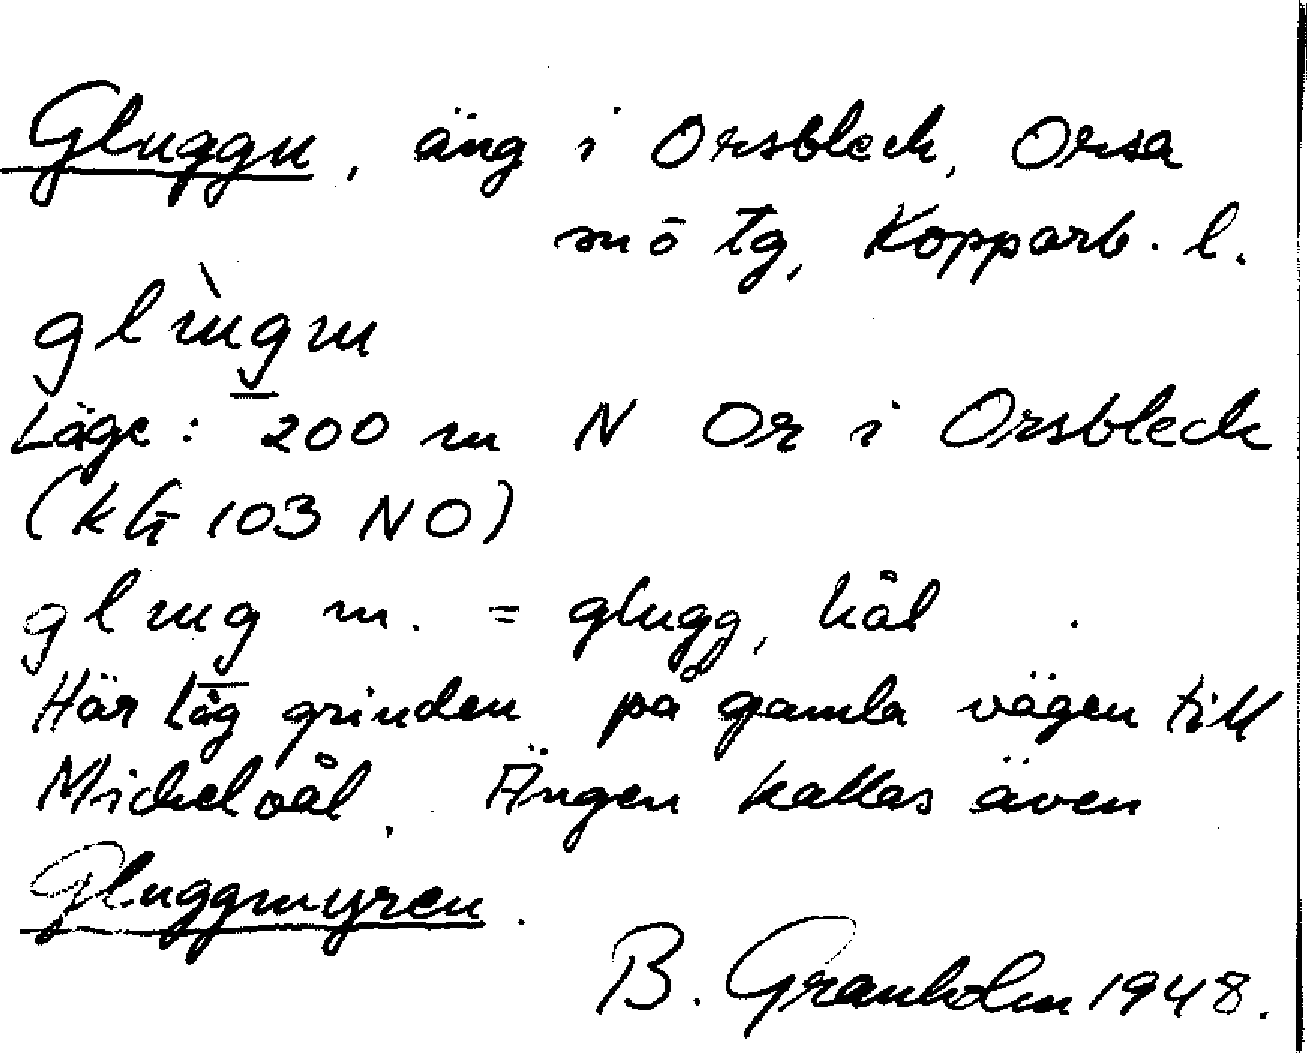 Gluggu, äng i Orsbleck, Orsa
mō tg, Kopparb. l.
Läge: 200 m N Or i Orsbleck
(kG 103 NO)
m. = glugg, hål
Här låg grinden på gamla vägen till
Michelvål. Ängen kallas även
Gluggmyren.
B. Granholm 1948.